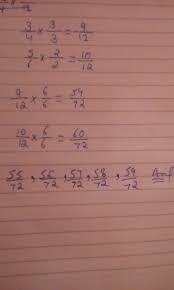 3/4 × 3/3 = 9/12
5/6 × 2/2 = 10/12
9/12 × 6/6 = 54/72
10/12 × 6/6 = 60/72
55/72, 56/72, 57/72, 58/72, 59/72 Ans